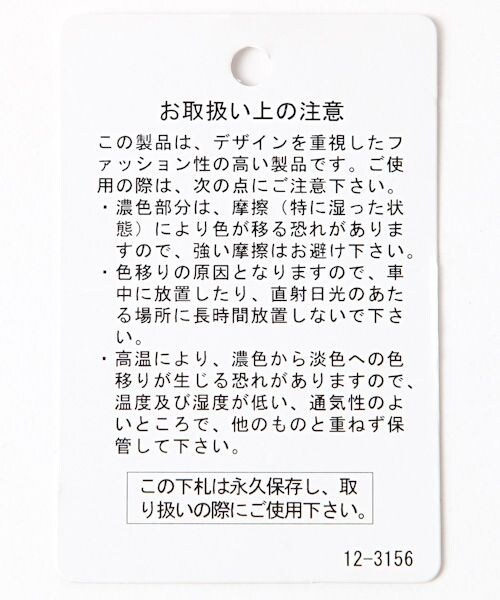 お取扱い上の注意
この製品は、デザインを重視したフ
ァッション性の高い製品です。ご使
用の際は、次の点にご注意下さい。
・濃色部分は、摩擦（特に湿った状
態）により色が移る恐れがありま
すので、強い摩擦はお避け下さい。
・色移りの原因となりますので、車
中に放置したり、直射日光のあた
る場所に長時間放置しないで下さ
い。
・高温により、濃色から淡色への色
移りが生じる恐れがありますので、
温度及び湿度が低い、通気性のよ
いところで、他のものと重ねず保
管して下さい。
この下札は永久保存し、取
り扱いの際にご使用下さい。
12-3156